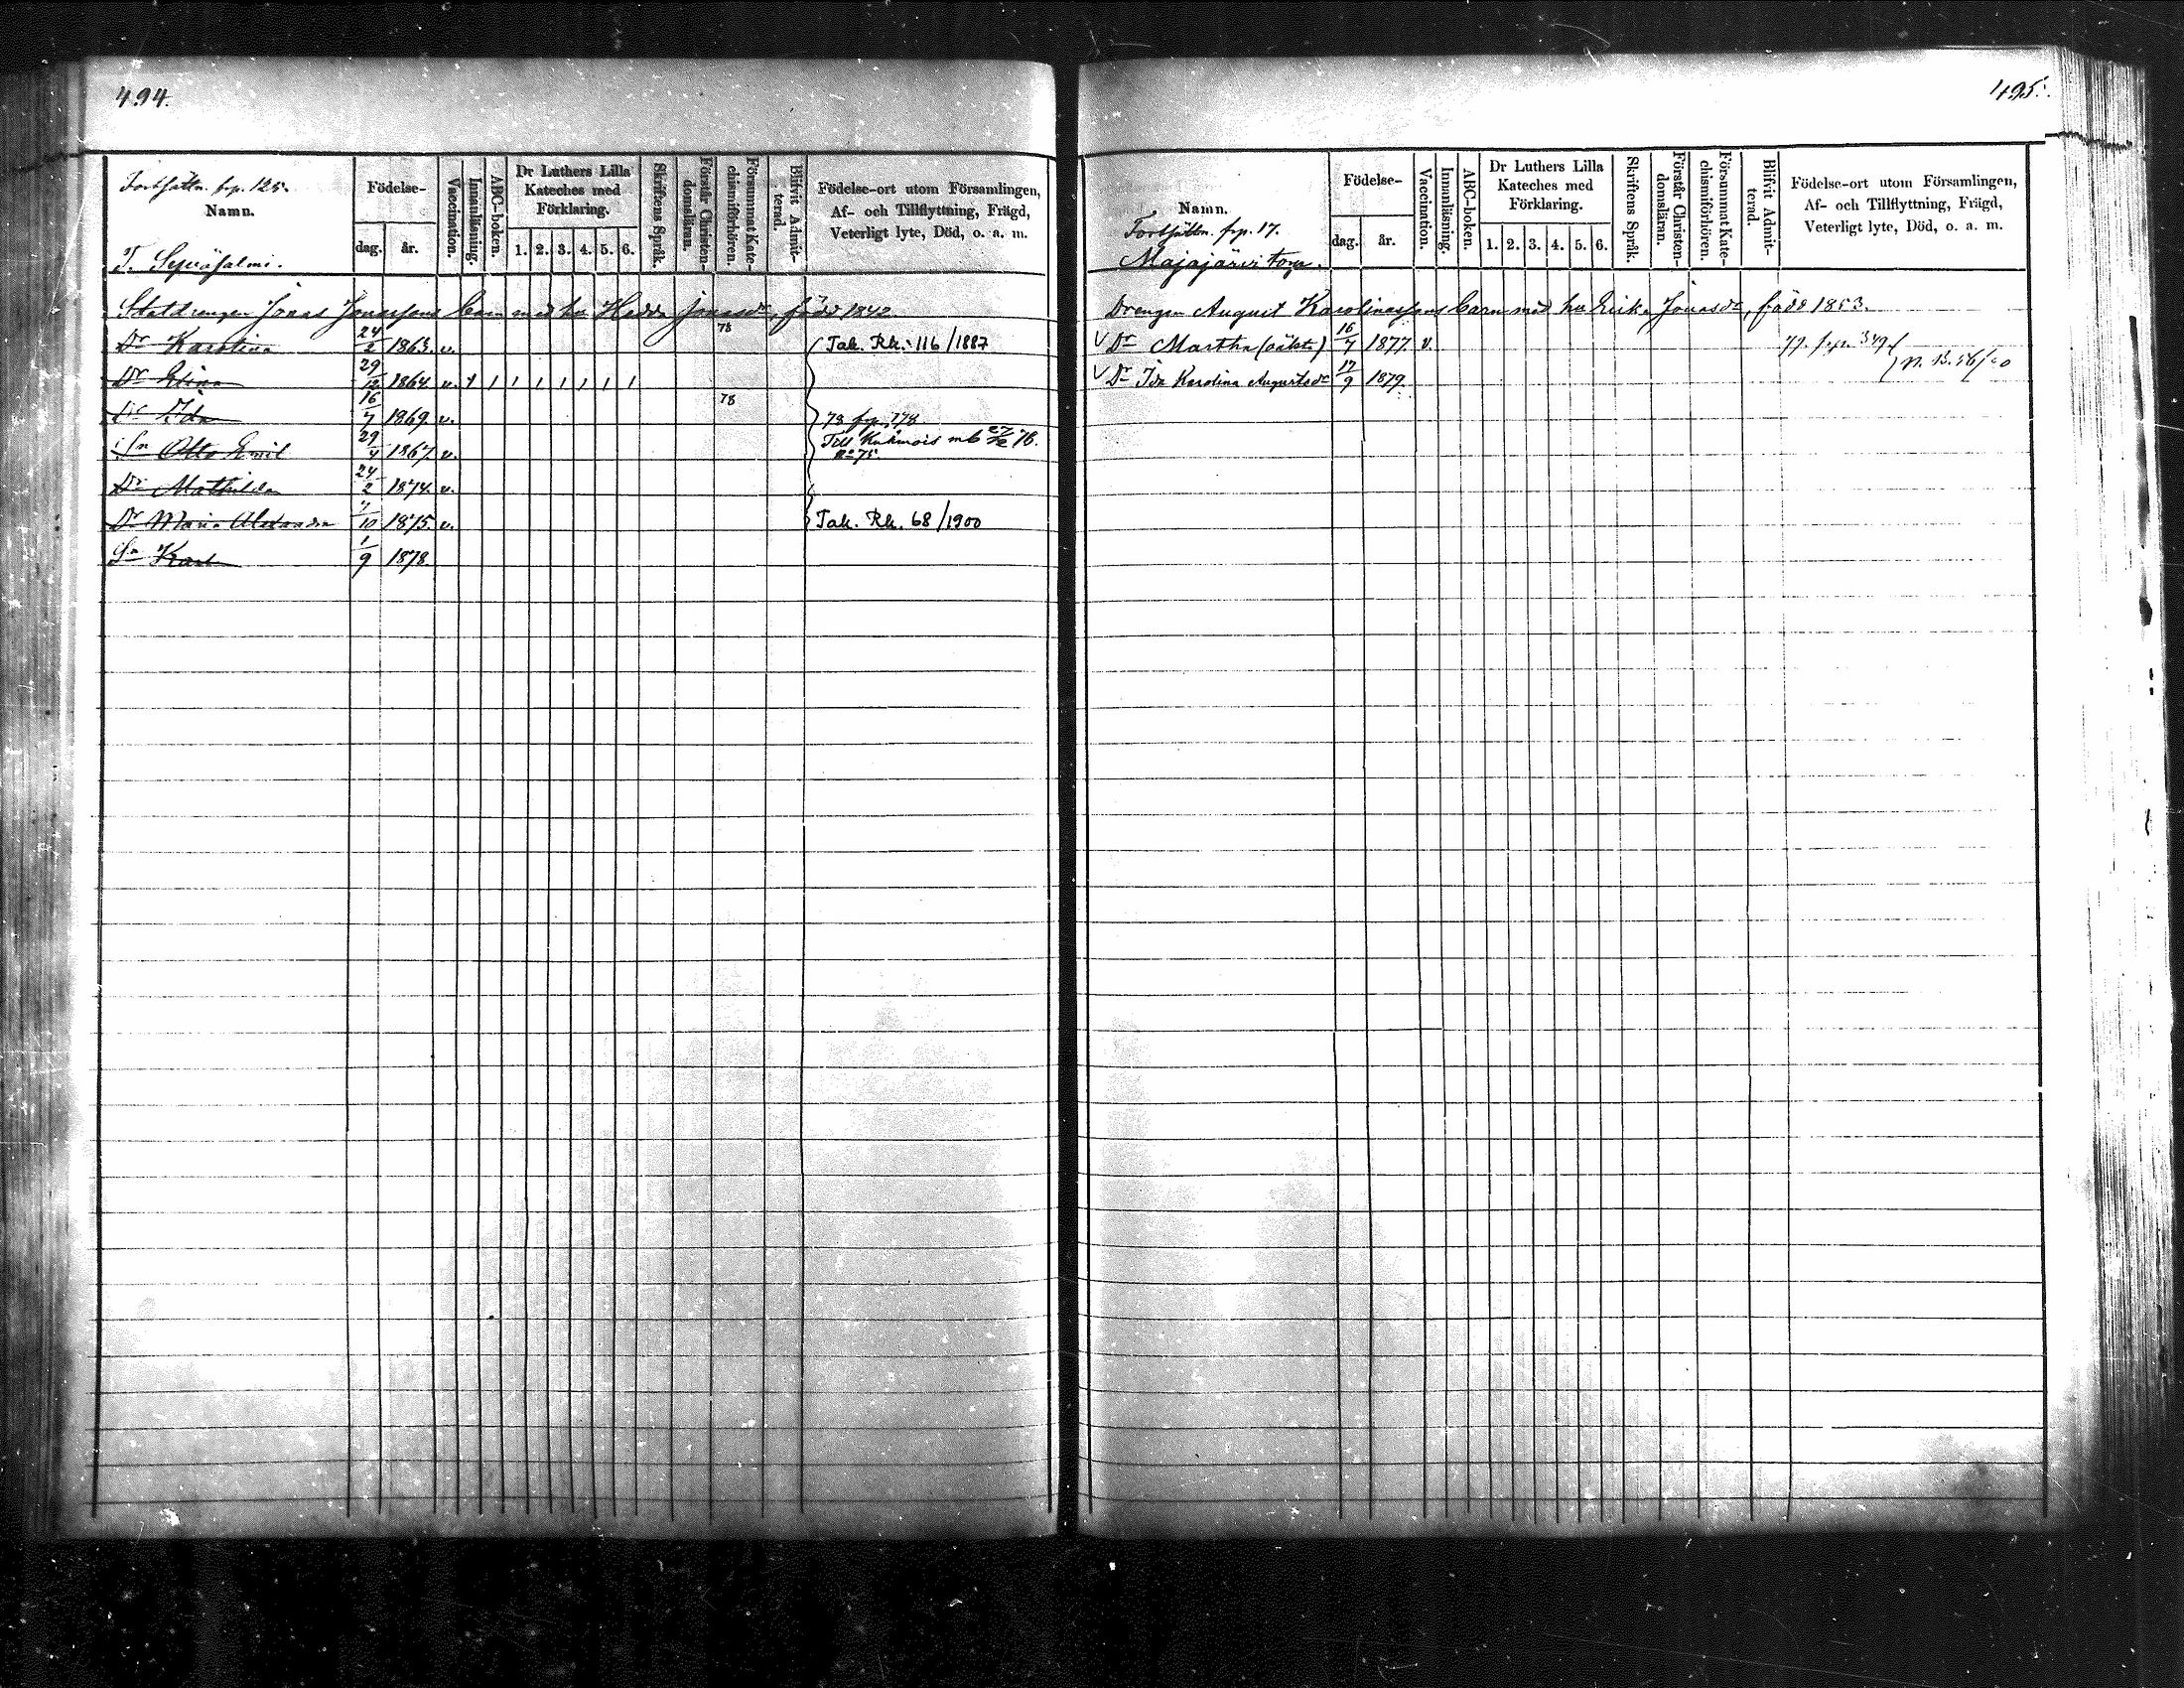 494.
Fortsättn. fr. p. 125.
Namn.
T. Syväsalmi.
Födelse-
dag. år.
Vaccination.
Innanläsning.
ABC-boken.
Dr Luthers Lilla
Kateches med
Förklaring.
1. 2. 3. 4. 5. 6.
Skriftens Språk.
Förstår Christen-
domsläran.
Försummat Kate-
chismiförhören.
Blifvit Admit-
terad.
Födelse-ort utom Församlingen,
Af- och Tillflyttning, Frägd,
Veterligt lyte, Död, o. a. m.
Statdrengen Jonas Jonassons barn med hu Hedda Jonasdr, född 1842.
Dr Karolina 24/2 1863. v. 78 Tak. Rk. 116/1887
Dr Elina 29/12 1864. v.
Dr Ida 16/7 1869. v. 78 78 fr. p. 178.
Sn Otto Emil 29/4 1867. v. Till Kuhmois mb 27/12 78.
no 75.
Dr Mathilda 24/2 1874. v.
Dr Maria Alexandra 7/10 1875. v. Tak. Rk. 68/1900
Sn Karl 1/9 1878.
495.
Namn.
Fortsättn. fr. p. 17.
Majajärvi torp.
Födelse-
dag. år.
Vaccination.
Innanläsning.
ABC-boken.
Dr Luthers Lilla
Kateches med
Förklaring.
1. 2. 3. 4. 5. 6.
Skriftens Språk.
Förstår Christen-
domsläran.
Försummat Kate-
chismiförhören.
Blifvit Admit-
terad.
Födelse-ort utom Församlingen,
Af- och Tillflyttning, Frägd,
Veterligt lyte, Död, o. a. m.
Drengen August Karolinassons barn med hu Erika Jonasdr, född 1853.
V Dr Martha (oäkta) 16/7 1877. v. 77.
V Dr Ida Karolina Augustsdr 17/9 1879.